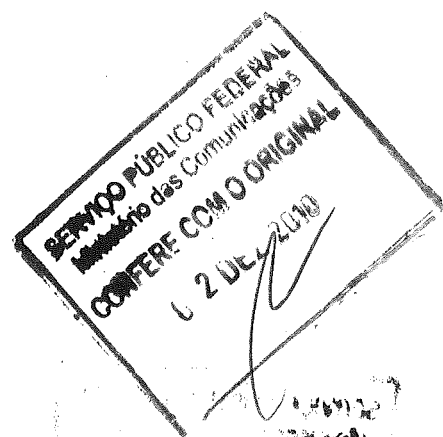 SERVIÇO PÚBLICO FEDERAL
Ministério das Comunicações
CONFERE COM O ORIGINAL
02 DEZ 2010